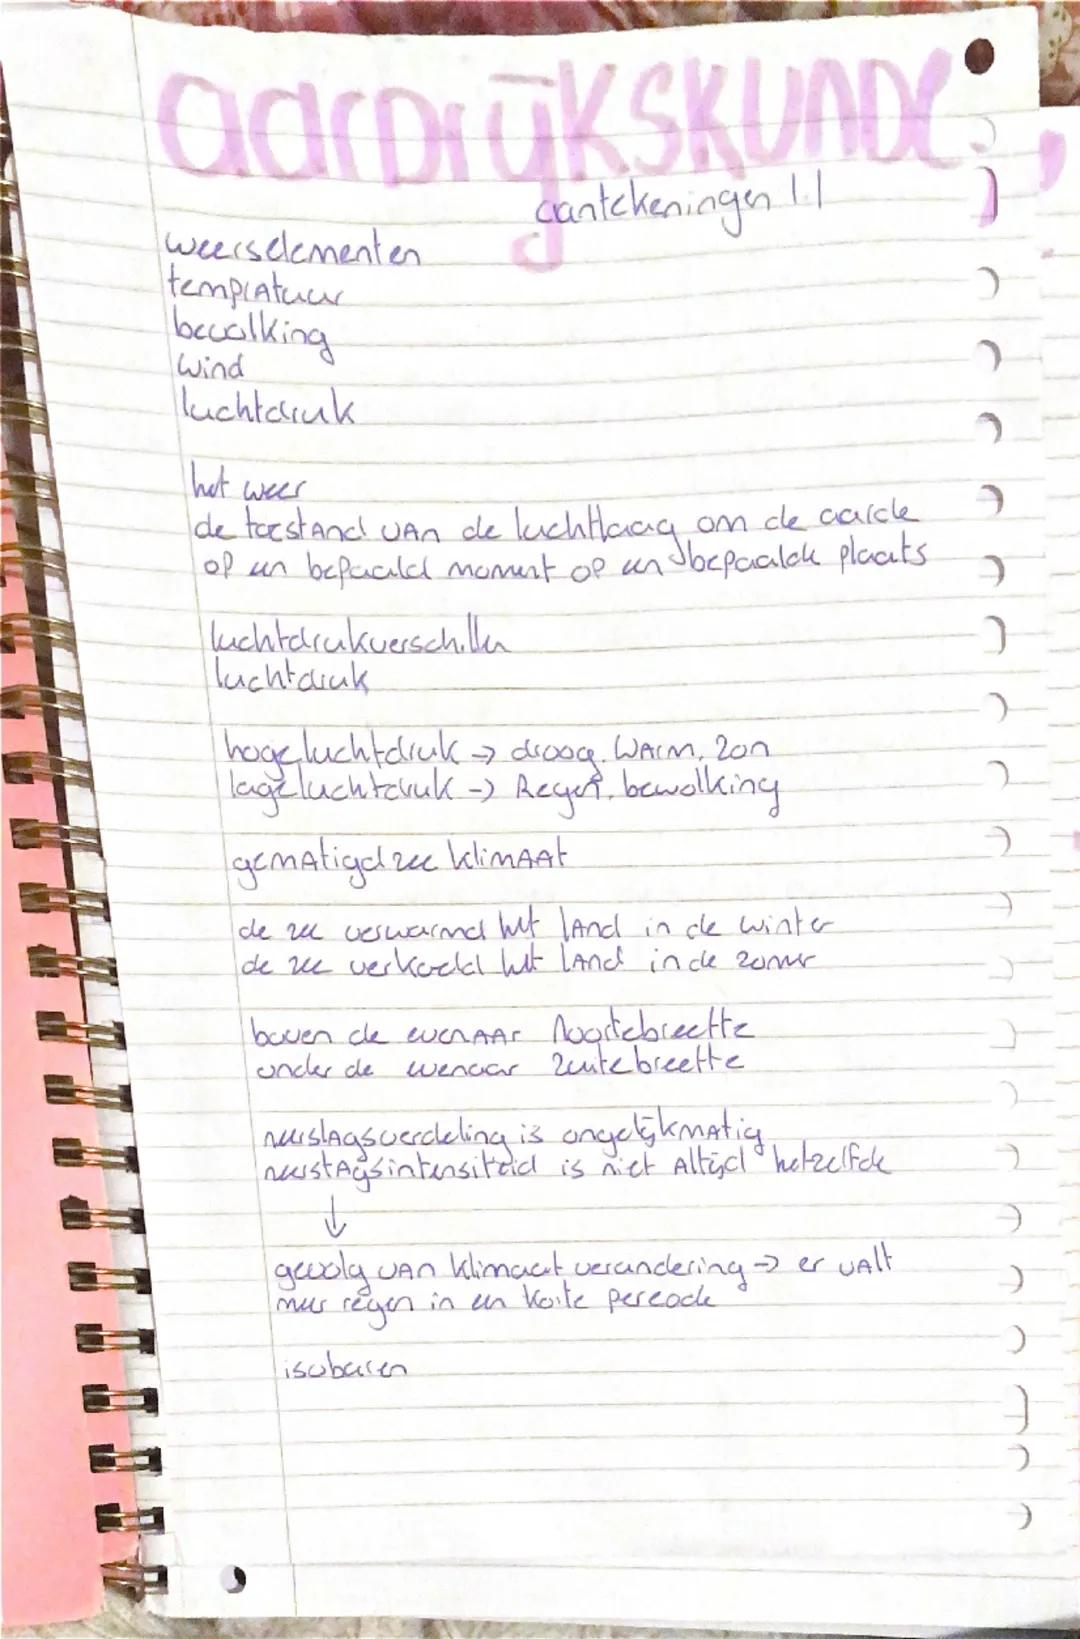 aardrijkskunde
aantekeningen 1.1
weerselementen
tempratuur
bewolking
wind
luchtdruk
het weer
de toestand van de luchtlaag om de aarde
op een bepaald moment op een bepaalde plaats
luchtdrukverschillen
luchtdruk
hoge luchtdruk → droog, warm, zon
lage luchtdruk → Regen, bewolking
gematigd zee klimaat
de zee verwarmd het land in de winter
de zee verkoeld het land in de zomer
boven de evenaar Noortebreette
onder de evenaar Zuitebreette
neerslagsverdeling is ongelijkmatig
neerslagsintensiteid is niet altijd hetzelfde
↓
gevolg van klimaat verandering → er valt
meer regen in een korte pereode
isobaren